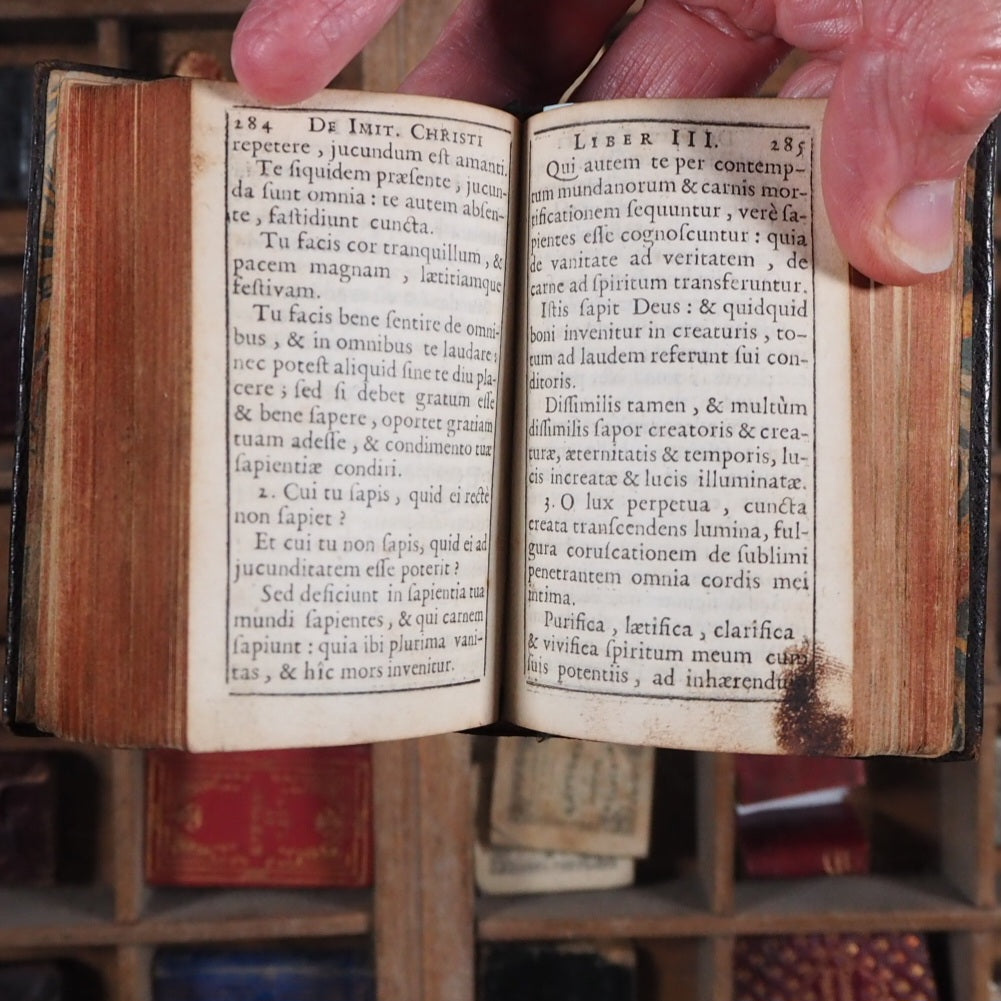 284 DE IMIT. CHRISTI
repetere, jucundum eſt amanti.
Te ſiquidem præſente, jucun-
da ſunt omnia : te autem abſen-
te, faſtidiunt cuncta.
Tu facis cor tranquillum, &
pacem magnam, lætitiamque
feſtivam.
Tu facis bene ſentire de omni-
bus, & in omnibus te laudare;
nec poteſt aliquid ſine te diu pla-
cere ; ſed ſi debet gratum eſſe
& bene ſapere, oportet gratiam
tuam adeſſe, & condimento tuæ
ſapientiæ condiri.
2. Cui tu ſapis, quid ei rectè
non ſapiet ?
Et cui tu non ſapis, quid ei ad
jucunditatem eſſe poterit ?
Sed deficiunt in ſapientia tua
mundi ſapientes, & qui carnem
ſapiunt : quia ibi plurima vani-
tas, & hîc mors invenitur.
LIBER III. 285
Qui autem te per contemp-
tum mundanorum & carnis mor-
tificationem ſequuntur, verè ſa-
pientes eſſe cognoſcuntur : quia
de vanitate ad veritatem, de
carne ad ſpiritum transferuntur.
Iſtis ſapit Deus : & quidquid
boni invenitur in creaturis, to-
tum ad laudem referunt ſui con-
ditoris.
Diſſimilis tamen, & multùm
diſſimilis ſapor creatoris & crea-
turæ, æternitatis & temporis, lu-
cis increatæ & lucis illuminatæ.
3. O lux perpetua, cuncta
creata tranſcendens lumina, ful-
gura coruſcationem de ſublimi
penetrantem omnia cordis mei
intima.
Purifica, lætifica, clarifica
& vivifica ſpiritum meum cum
ſuis potentiis, ad inhærendum